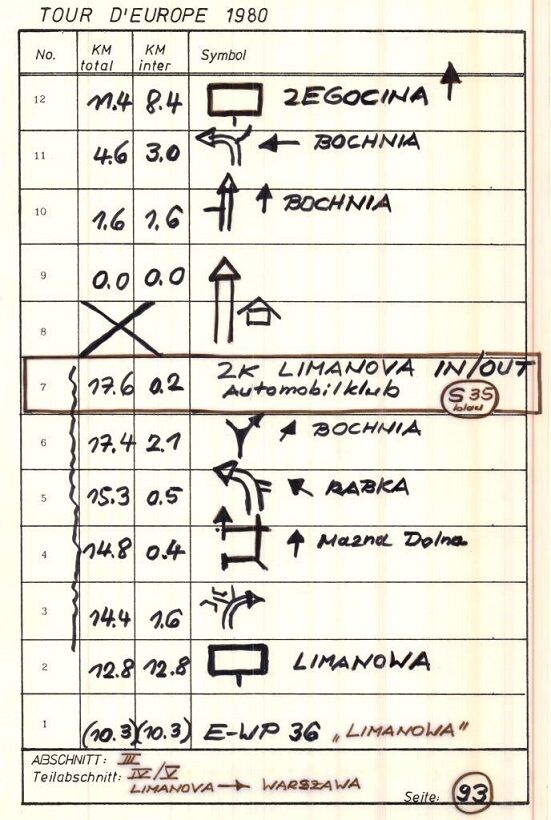 TOUR D'EUROPE 1980
No. KM total KM inter Symbol
12 11.4 8.4 ZEGOCINA
11 4.6 3.0 BOCHNIA
10 1.6 1.6 BOCHNIA
9 0.0 0.0
8
7 17.6 0.2 ZK LIMANOVA IN/OUT
Automobilklub S 35
blau
6 17.4 2.1 BOCHNIA
5 15.3 0.5 RABKA
4 14.8 0.4 Mazna Dolna
3 14.4 1.6
2 12.8 12.8 LIMANOWA
1 (10.3) (10.3) E-WP 36 „LIMANOWA"
ABSCHNITT: III
Teilabschnitt: IV/V
LIMANOVA → WARSZAWA
Seite: 93